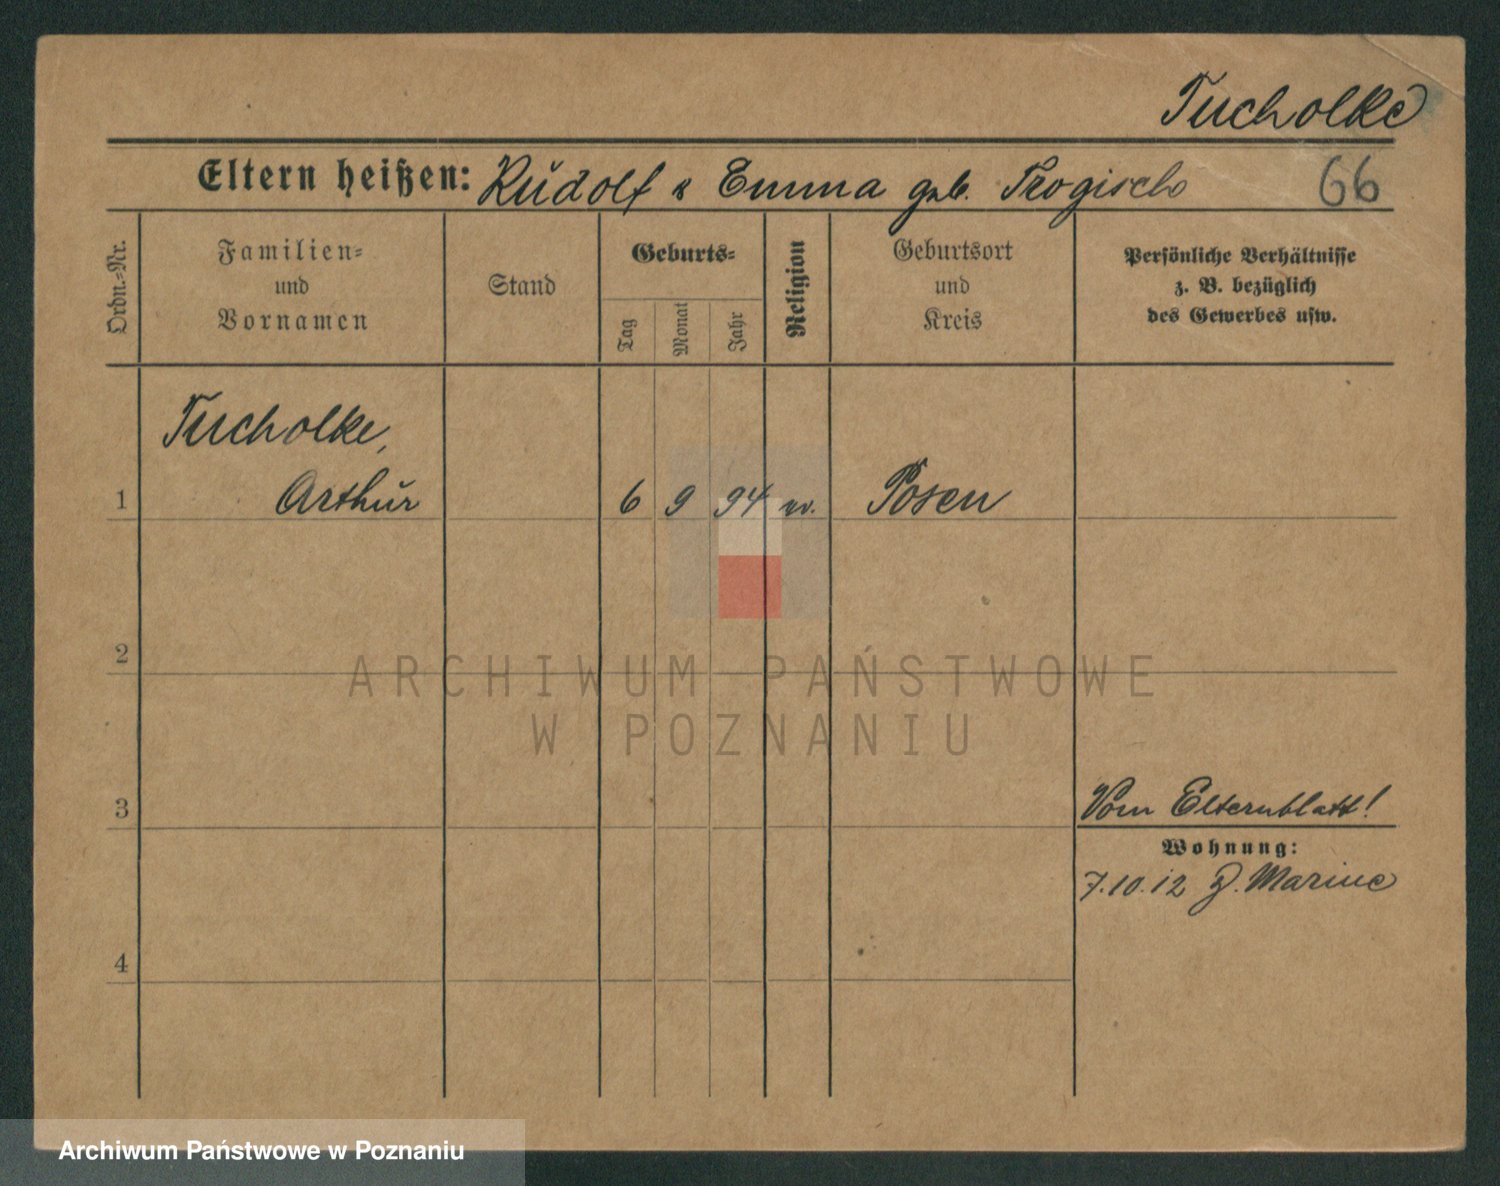 Tucholke
Eltern heißen: Rudolf & Emma geb. Progisch
66
Ordn.-Nr.
Familien- und Vornamen
Stand
Geburts-
Tag
Monat
Jahr
Religion
Geburtsort und Kreis
Persönliche Verhältnisse
z. B. bezüglich
des Gewerbes usw.
Tucholke,
1 Arthur 6 9 94 ev. Posen
2
ARCHIWUM PAŃSTWOWE
W POZNANIU
3
Vom Elternblatt!
Wohnung:
7.10.12 z. Marine
4
Archiwum Państwowe w Poznaniu